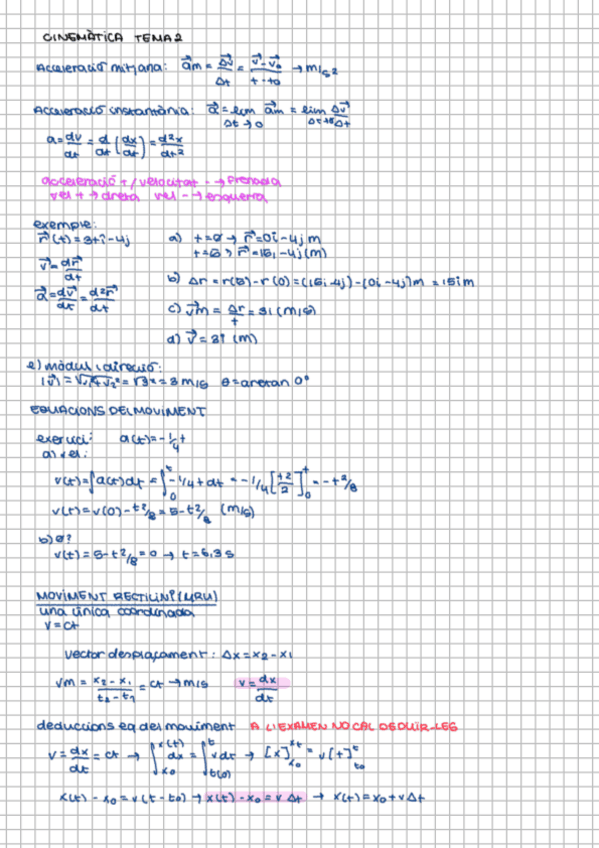 CINEMÀTICA TEMA 2
Acceleració mitjana: a⃗m = Δv⃗/Δt = (v⃗ - v⃗₀)/(t - t₀) → m/s²
Acceleració instantània: a⃗ = lim Δt→0 a⃗m = lim Δt→0 Δv⃗/Δt
a = dv/dt = d/dt (dx/dt) = d²x/dt²
acceleració + / velocitat - → Frenada
vel + → dreta vel - → esquerra
exemple:
r⃗(t) = 3ti - 4j
a) t=0 → r⃗ = 0i - 4j m
t=5 → r⃗ = 15i - 4j (m)
v⃗ = dr⃗/dt
b) Δr = r(5) - r(0) = (15i - 4j) - (0i - 4j) m = 15i m
a⃗ = dv⃗/dt = d²r⃗/dt
c) v⃗m = Δr/t = 3i (m/s)
d) v⃗ = 3i (m)
e) mòdul i direcció:
|v⃗| = = √3² = 3 m/s θ = arctan 0°
EQUACIONS DEL MOVIMENT
exercici: a(t) = -1/4 t
a) vel:
v(t) = ∫a(t)dt = ∫₀ᵗ -1/4 t dt = -1/4 [t²/2]₀ᵗ = -t²/8
v(t) = v(0) - t²/8 = 5 - t²/8 (m/s)
b) 0?
v(t) = 5 - t²/8 = 0 → t = 6,3 s
MOVIMENT RECTILINI (MRU)
una única coordenada
v = ct
vector desplaçament: Δx = x₂ - x₁
vm = (x₂ - x₁)/(t₂ - t₁) = ct → m/s v = dx/dt
deduccions eq del moviment A L'EXAMEN NO CAL DEDUIR-LES
v = dx/dt = ct → ∫x₀ x(t) dx = ∫t(0) t v dt → [x]x₀ xt = v[t]t₀ t
x(t) - x₀ = v(t - t₀) → x(t) - x₀ = v Δt → x(t) = x₀ + v Δt